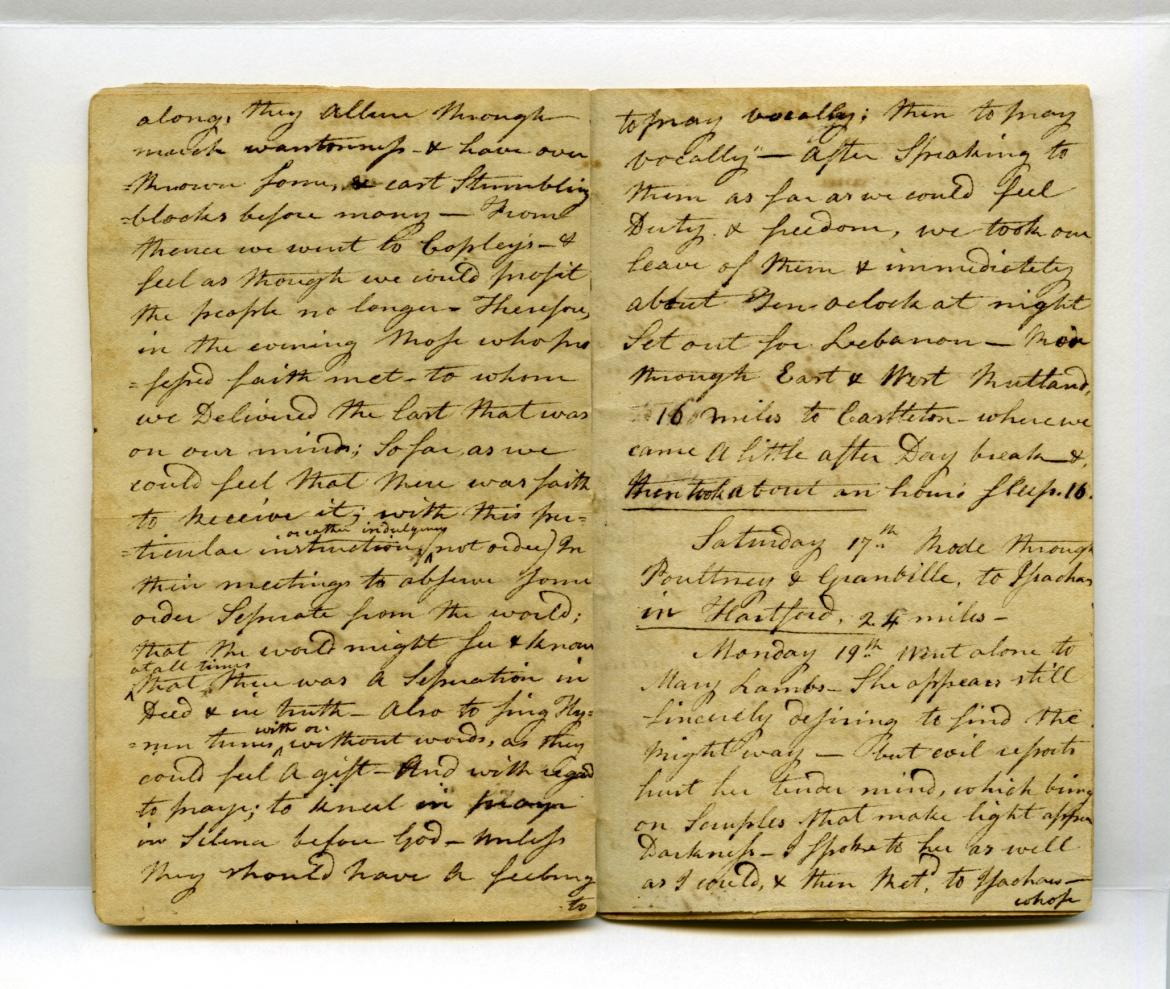 along, they allure through
much wantonness - & have over
=thrown some, & cast Stumbling
=blocks before many — From
thence we went to Copley's - &
feel as though we could profit
the people no longer - Therefore,
in the evening those who pro
=fessed faith met - to whom
we Delivered the last that was
on our minds; So far, as we
could feel that there was faith
to Receive it; with this per=
or rather indulgence
=ticular instruction, (not order) In
their meetings to observe Some
order Seperate from the world;
that the world might see & know
at all times
that there was A Seperation in
Deed & in truth - Also to sing Hy=
with or
=mn tunes without words, as they
could feel A gift - And with regard
to prayr; to kneel in prayr
in Silence before God - Unless
they should have A feeling
to
to pray vocally; then to pray
vocally" — After Speaking to
them as far as we could feel
Duty & freedom, we took our
leave of them & immedietely
about Ten oclock at night
Set out for Lebanon — Rode
through East & West Rutland,
16 miles to Castleton - where we
came A little after Day break - &
then took about an hours sleep. 16.
Saturday 17th Rode through
Poultney & Granville, to Issachars
in Hartford. 24 miles -
Monday 19th Went alone to
Mary Lambs - She appears still
sincerely desiring to find the
Right way — but evil reports
hurt her tender mind, which bring
on Scruples that make light appear
Darkness - I spoke to her as well
as I could, & then Retd. to Issachars —
whose